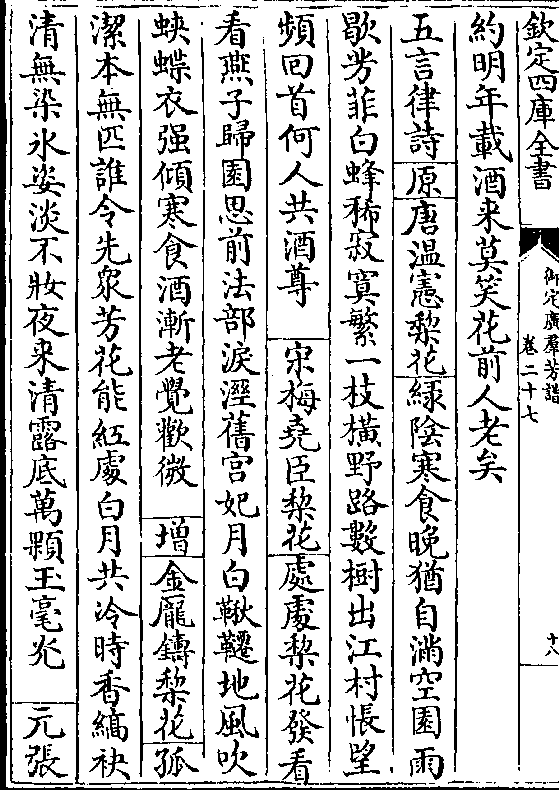 欽定四庫全書
御定廣羣芳譜
卷二十七
十八
約明年載酒来莫笑花前人老矣
五言律詩原唐温憲梨花緑陰寒食晚猶自滿空園雨
歇芳菲白蜂稀寂寞繁一枝横野路數樹出江村悵望
頻回首何人共酒尊 宋梅堯臣梨花處處梨花發看
看燕子歸園思前法部淚溼舊宫妃月白鞦韆地風吹
蛺蝶衣强傾寒食酒漸老覺歡微 增金龎鑄梨花孤
潔本無匹誰令先衆芳花能紅處白月共冷時香縞袂
清無染氷姿淡不妝夜来清露底萬顆玉毫光 元張